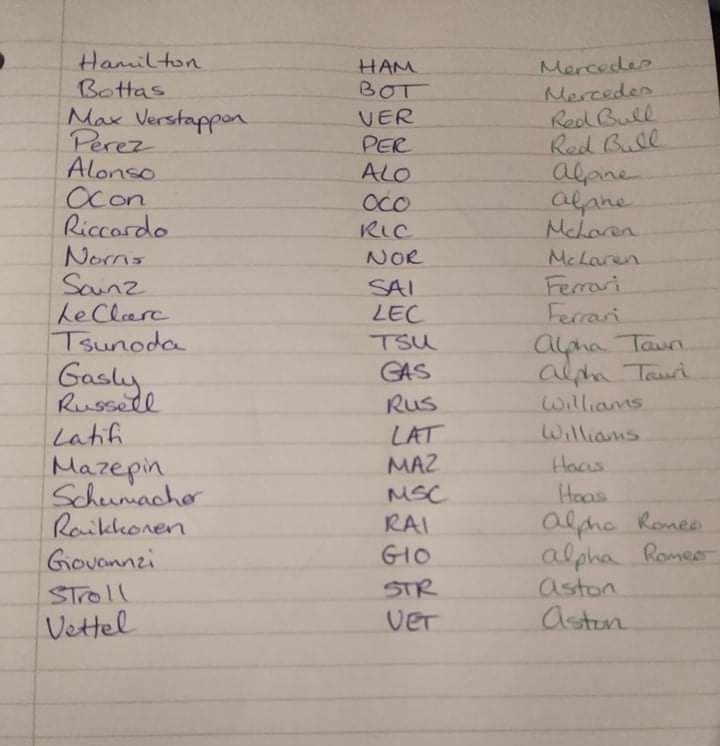 Hamilton HAM Mercedes
Bottas BOT Mercedes
Max Verstappen VER Red Bull
Perez PER Red Bull
Alonso ALO Alpine
Ocon OCO Alpine
Riccardo RIC McLaren
Norris NOR McLaren
Sainz SAI Ferrari
LeClerc LEC Ferrari
Tsunoda TSU Alpha Tauri
Gasly GAS Alpha Tauri
Russell RUS Williams
Latifi LAT Williams
Mazepin MAZ Haas
Schumacher MSC Haas
Raikkonen RAI Alpha Romeo
Giovannzi GIO Alpha Romeo
STroll STR Aston
Vettel VET Aston